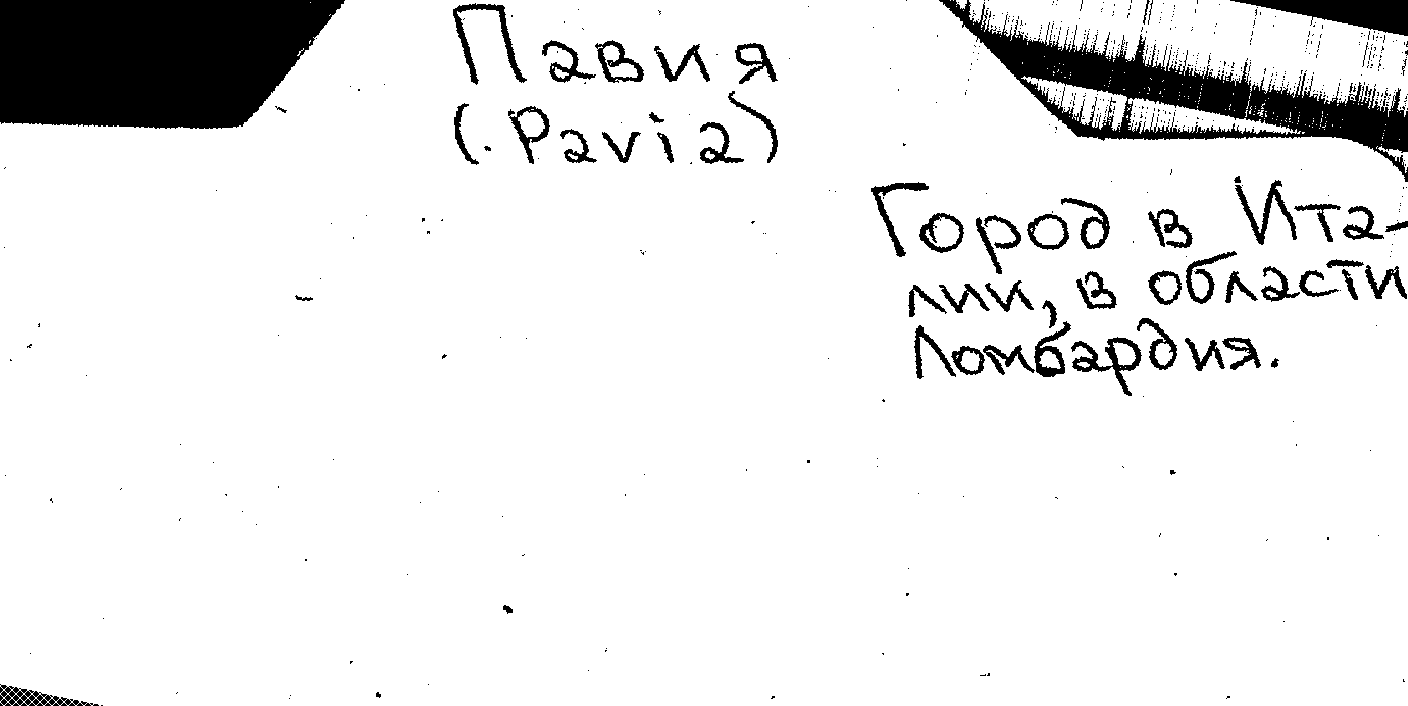 Павия
(Pavia)
Город в Ита-
лии, в области
Ломбардия.